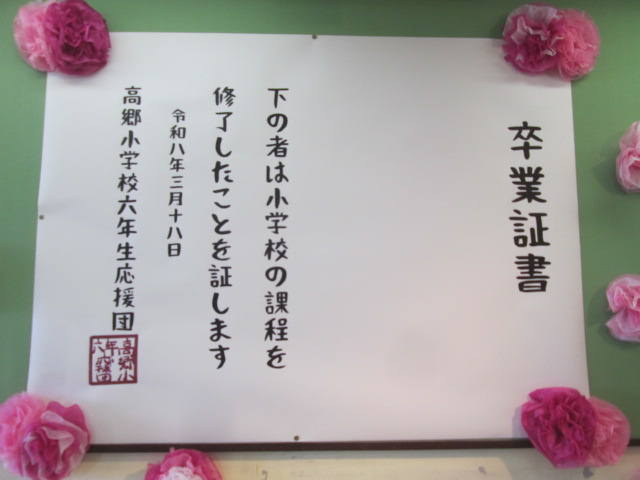 卒業証書
下の者は小学校の課程を
修了したことを証します
令和八年三月十八日
高郷小学校六年生応援団
高郷小
六年応援団